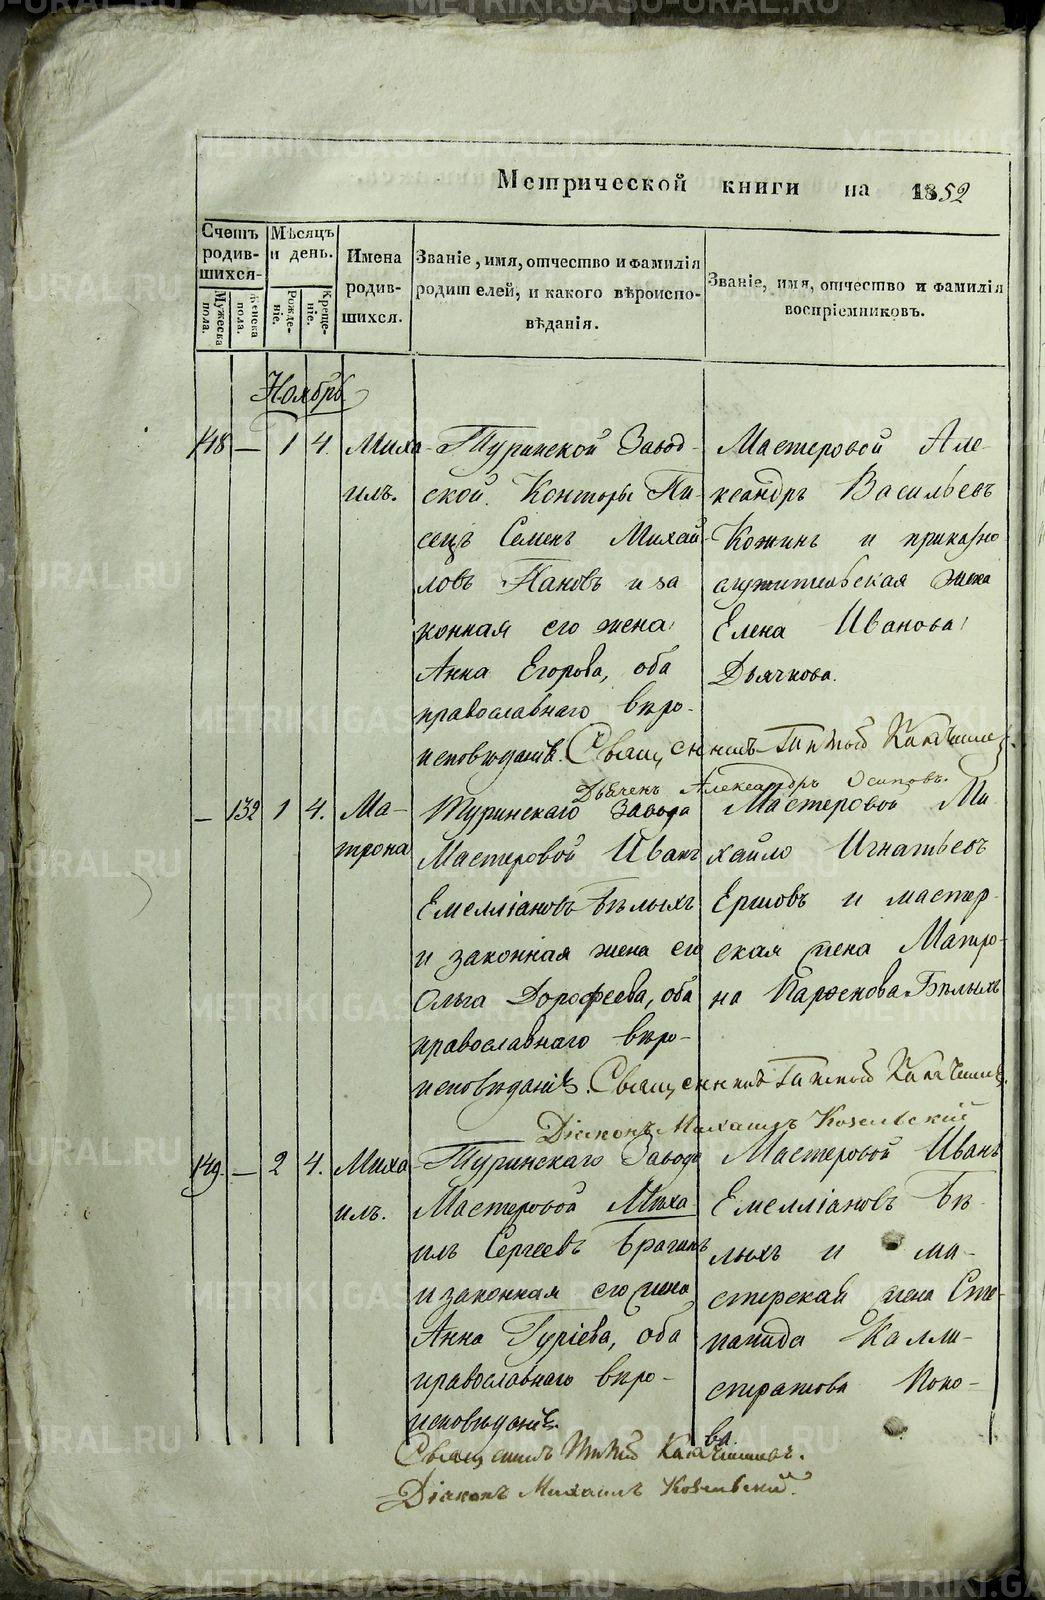 METRIKI.GASO-URAL.RU
Метрической книги на 1852
Счетъ родив-шихся.
Мужеска пола.
Женска пола.
Мѣсяцъ и день.
Рожде-ніе.
Креще-ніе.
Имена родив-шихся.
Званіе, имя, отчество и фамилія родителей, и какого вѣроиспо-вѣданія.
Званіе, имя, отчество и фамилія воспріемниковъ.
Ноябрь
148 — 1 4. Миха-
илъ.
Туринской Завод-
ской Конторы Пи-
сецъ Семенъ Михай-
ловъ Пановъ и за
конная его жена
Анна Егорова, оба
православнаго вѣро-
исповѣданія.
Мастеровой Але-
ксандръ Васильевъ
Кожинъ и приказно
служительская жена
Елена Иванова
Дьячкова.
Священникъ
Дьячекъ Александръ Осиповъ.
— 132 1 4. Ма-
трона
Туринскаго Завода
Мастеровой Иванъ
Емелліановъ Бѣлыхъ
и законная жена его
Ольга Дорофеева, оба
православнаго вѣро-
исповѣданія.
Мастеровой Ми-
хайло Игнатьевъ
Ершовъ и мастер-
ская жена Матро-
на Парфенова Бѣлыхъ
Священникъ
Діаконъ Михаилъ Козельскій
149. — 2 4. Миха-
илъ.
Туринскаго Завода
Мастеровой Миха
илъ Сергеевъ Брагинъ
и законная его жена
Анна Гуріева, оба
православнаго вѣро-
исповѣданія.
Мастеровой Иванъ
Емелліановъ Бѣ-
лыхъ и ма-
стерская жена Сте-
панида Калли-
стратова Попо-
ва.
Священникъ
Діаконъ Михаилъ Козельскій.